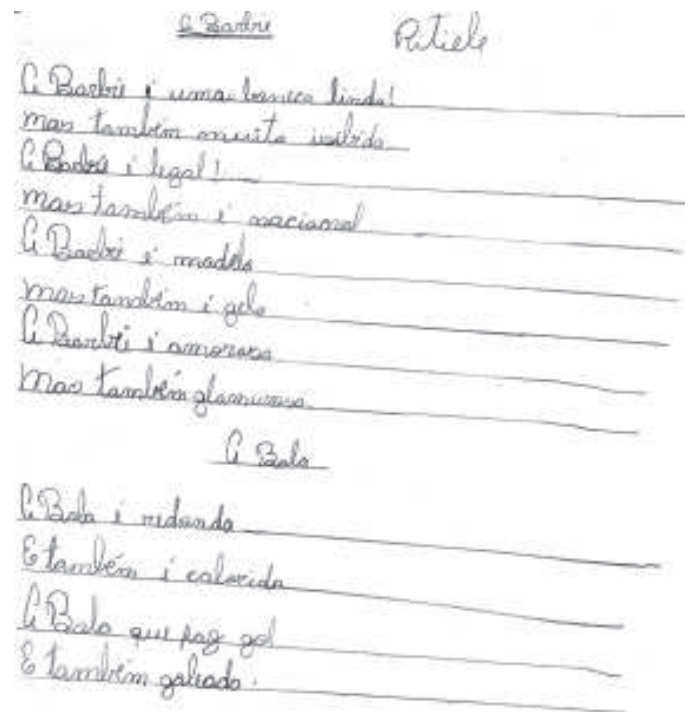 A Barbie Ritiele
A Barbie é uma boneca linda!
mas também muito exibida
A Barbie é legal!
mas também é nacional
A Barbie é modelo
mas também é gelo
A Barbie é amorosa
Mas também glamurosa
A Bola
A Bola é redonda
E também é colorida
A Bola que faz gol
E também goleada.